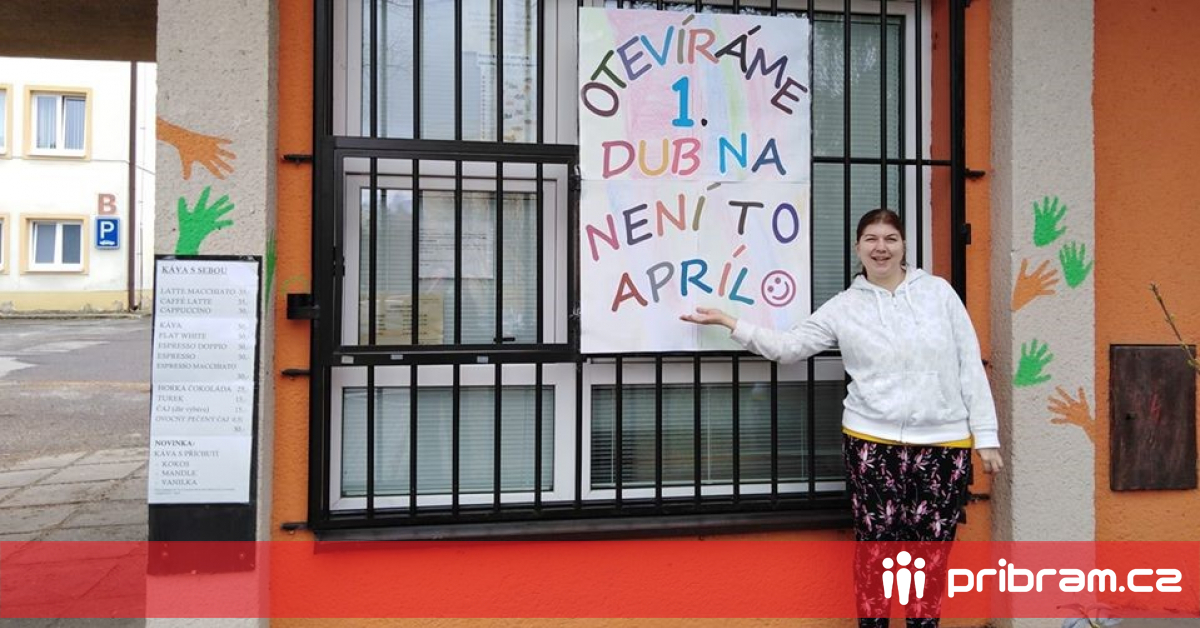 OTEVÍRÁME
1.
DUBNA
NENÍ TO
APRÍL
B
P
KÁVA S SEBOU
LATTE MACCHIATO
CAFFÉ LATTE
CAPPUCCINO
KÁVA
FLAT WHITE
ESPRESSO DOPPIO
ESPRESSO
ESPRESSO MACCHIATO
HORKÁ ČOKOLÁDA
TUREK
ČAJ (dle výběru)
OVOCNÝ PEČENÝ ČAJ
NOVINKA:
KÁVA S PŘÍCHUTÍ
- KOKOS
- MANDLE
- VANILKA
pribram.cz